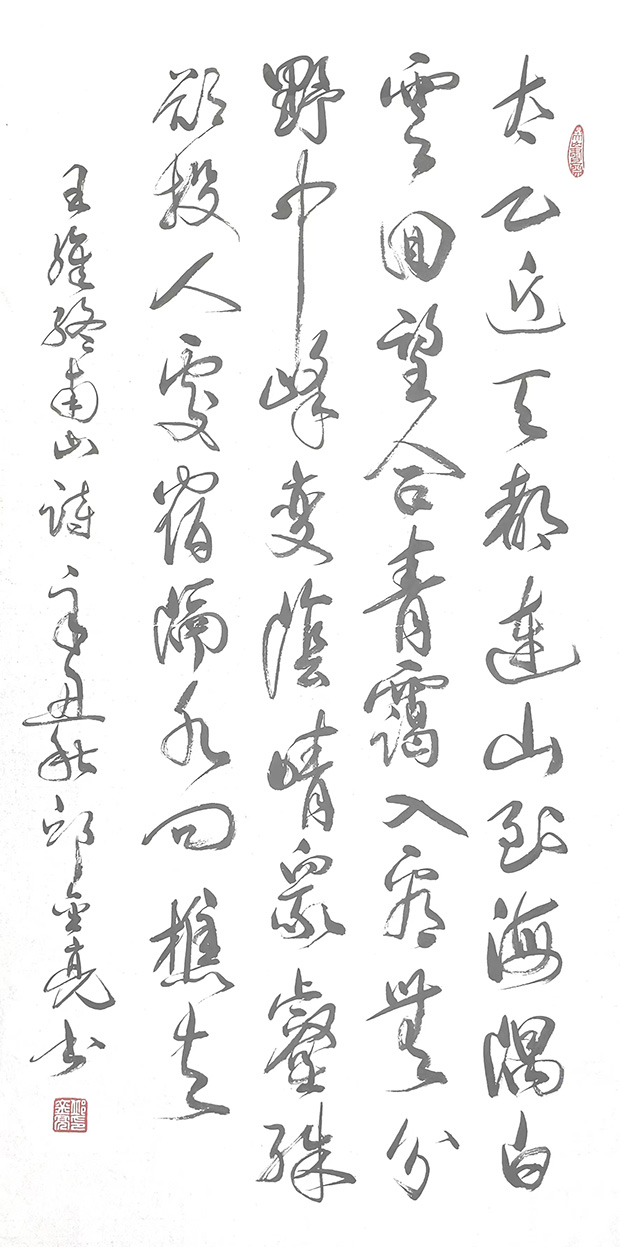 太乙近天都連山到海隅白
雲回望合青靄入看無分
野中峰变陰晴眾壑殊
欲投人處宿隔水問樵夫
王維終南山詩辛丑秋邱金亮书